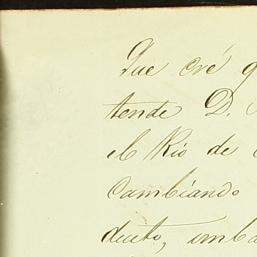 Que cré q
tende D.
el Rio de
cambiando
ducto, emba